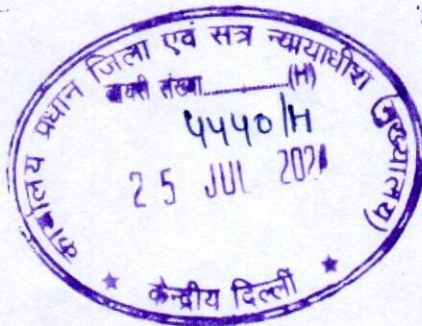 कार्यालय प्रधान जिला एवं सत्र न्यायाधीश (मुख्यालय)
डायरी संख्या..............(H)
4440/H
25 JUL
★ केन्द्रीय दिल्ली ★